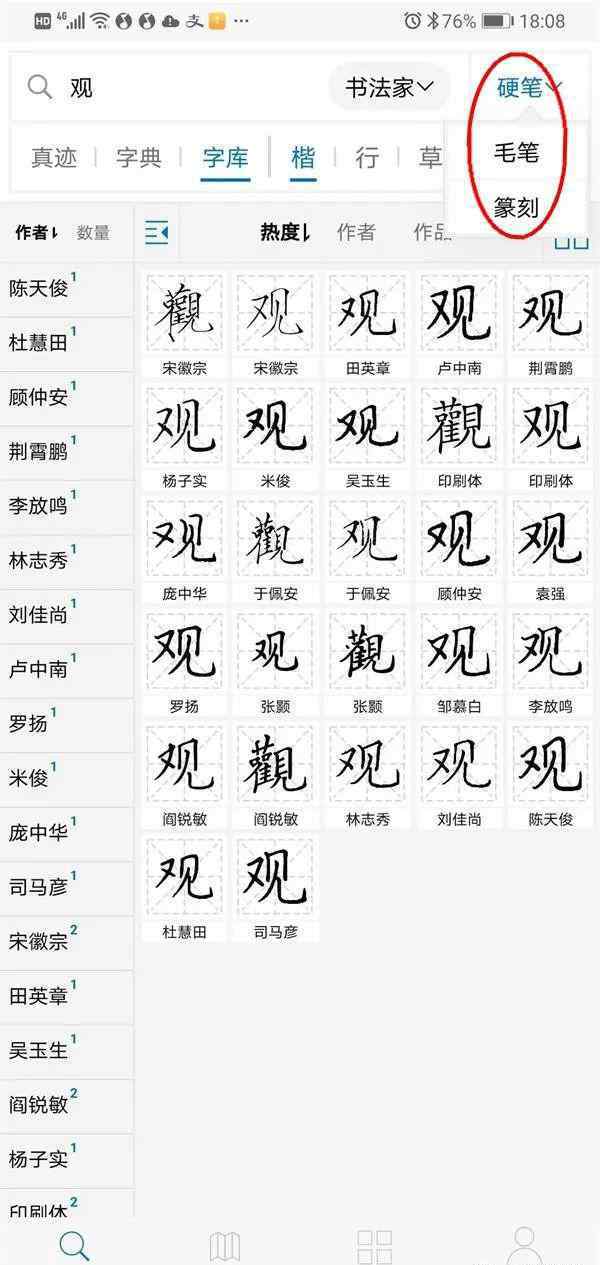 HD 4G 支 ··· 76% 18:08
观 书法家 硬笔
毛笔
篆刻
真迹 字典 字库 楷 行 草
作者 数量 热度 作者 作品
陈天俊 1
杜慧田 1
顾仲安 1
荆霄鹏 1
李放鸣 1
林志秀 1
刘佳尚 1
卢中南 1
罗扬 1
米俊 1
庞中华 1
司马彦 1
宋徽宗 2
田英章 1
吴玉生 1
阎锐敏 2
杨子实 1
印刷体 2
觀 观 观 观 观
宋徽宗 宋徽宗 田英章 卢中南 荆霄鹏
观 观 观 觀 观
杨子实 米俊 吴玉生 印刷体 印刷体
观 觀 观 观 观
庞中华 于佩安 于佩安 顾仲安 袁强
观 观 觀 观 观
罗扬 张颢 张颢 邹慕白 李放鸣
观 觀 观 观 观
阎锐敏 阎锐敏 林志秀 刘佳尚 陈天俊
观 观
杜慧田 司马彦